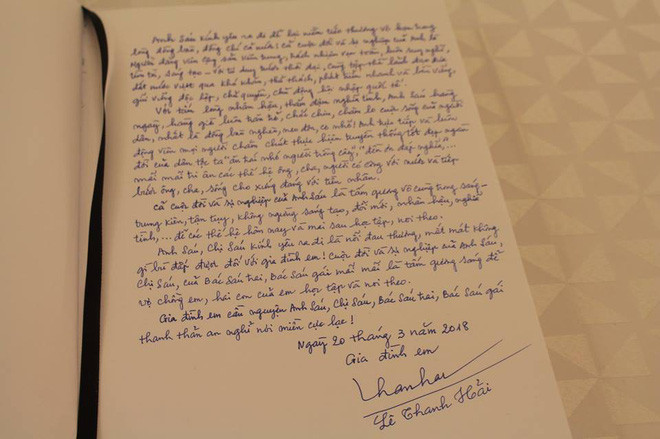 Anh Sáu kính yêu ra đi để lại niềm tiếc thương vô hạn trong
lòng đồng bào, đồng chí cả nước! Cả cuộc đời và sự nghiệp của Anh là
Người đảng viên cộng sản kiên trung, trách nhiệm cao, luôn suy nghĩ,
tìm tòi, sáng tạo - với tư duy vượt thời đại, cùng tập thể lãnh đạo đưa
đất nước vượt qua khó khăn, thử thách, phát triển nhanh và bền vững,
giữ vững độc lập, chủ quyền, chủ động hội nhập quốc tế.
Với tấm lòng nhân hậu, thấm đậm nghĩa tình, Anh Sáu hàng
ngày, hàng giờ luôn trăn trở, chắt chiu, chăm lo cuộc sống của người
dân, nhất là đồng bào nghèo, neo đơn, cơ nhỡ! Anh trực tiếp và luôn
động viên mọi người chăm chút thực hiện truyền thống tốt đẹp ngàn
đời của dân tộc ta "ăn trái nhớ người trồng cây", "đền ơn đáp nghĩa",...
mãi mãi tri ân các thế hệ ông, cha, người có công với nước và tiếp
bước ông, cha, sống cho xứng đáng với tiền nhân.
Cả cuộc đời và sự nghiệp của Anh Sáu là tấm gương vô cùng trong sáng -
trung kiên, tận tụy, không ngừng sáng tạo, đổi mới, nhân hậu, nghĩa
tình,... để các thế hệ hôm nay và mai sau học tập, noi theo.
Anh Sáu, Chị Sáu kính yêu ra đi là nỗi đau thương, mất mát không
gì bù đắp được đối với gia đình em! Cuộc đời và sự nghiệp của Anh Sáu,
Chị Sáu, của Bác Sáu trai, Bác Sáu gái mãi mãi là tấm gương sáng để
vợ chồng em, hai con của em học tập và noi theo.
Gia đình em cầu nguyện Anh Sáu, Chị Sáu, Bác Sáu trai, Bác Sáu gái
thanh thản an nghỉ nơi miền cực lạc!
Ngày 20 tháng 3 năm 2018
Gia đình em
Lê Thanh Hải